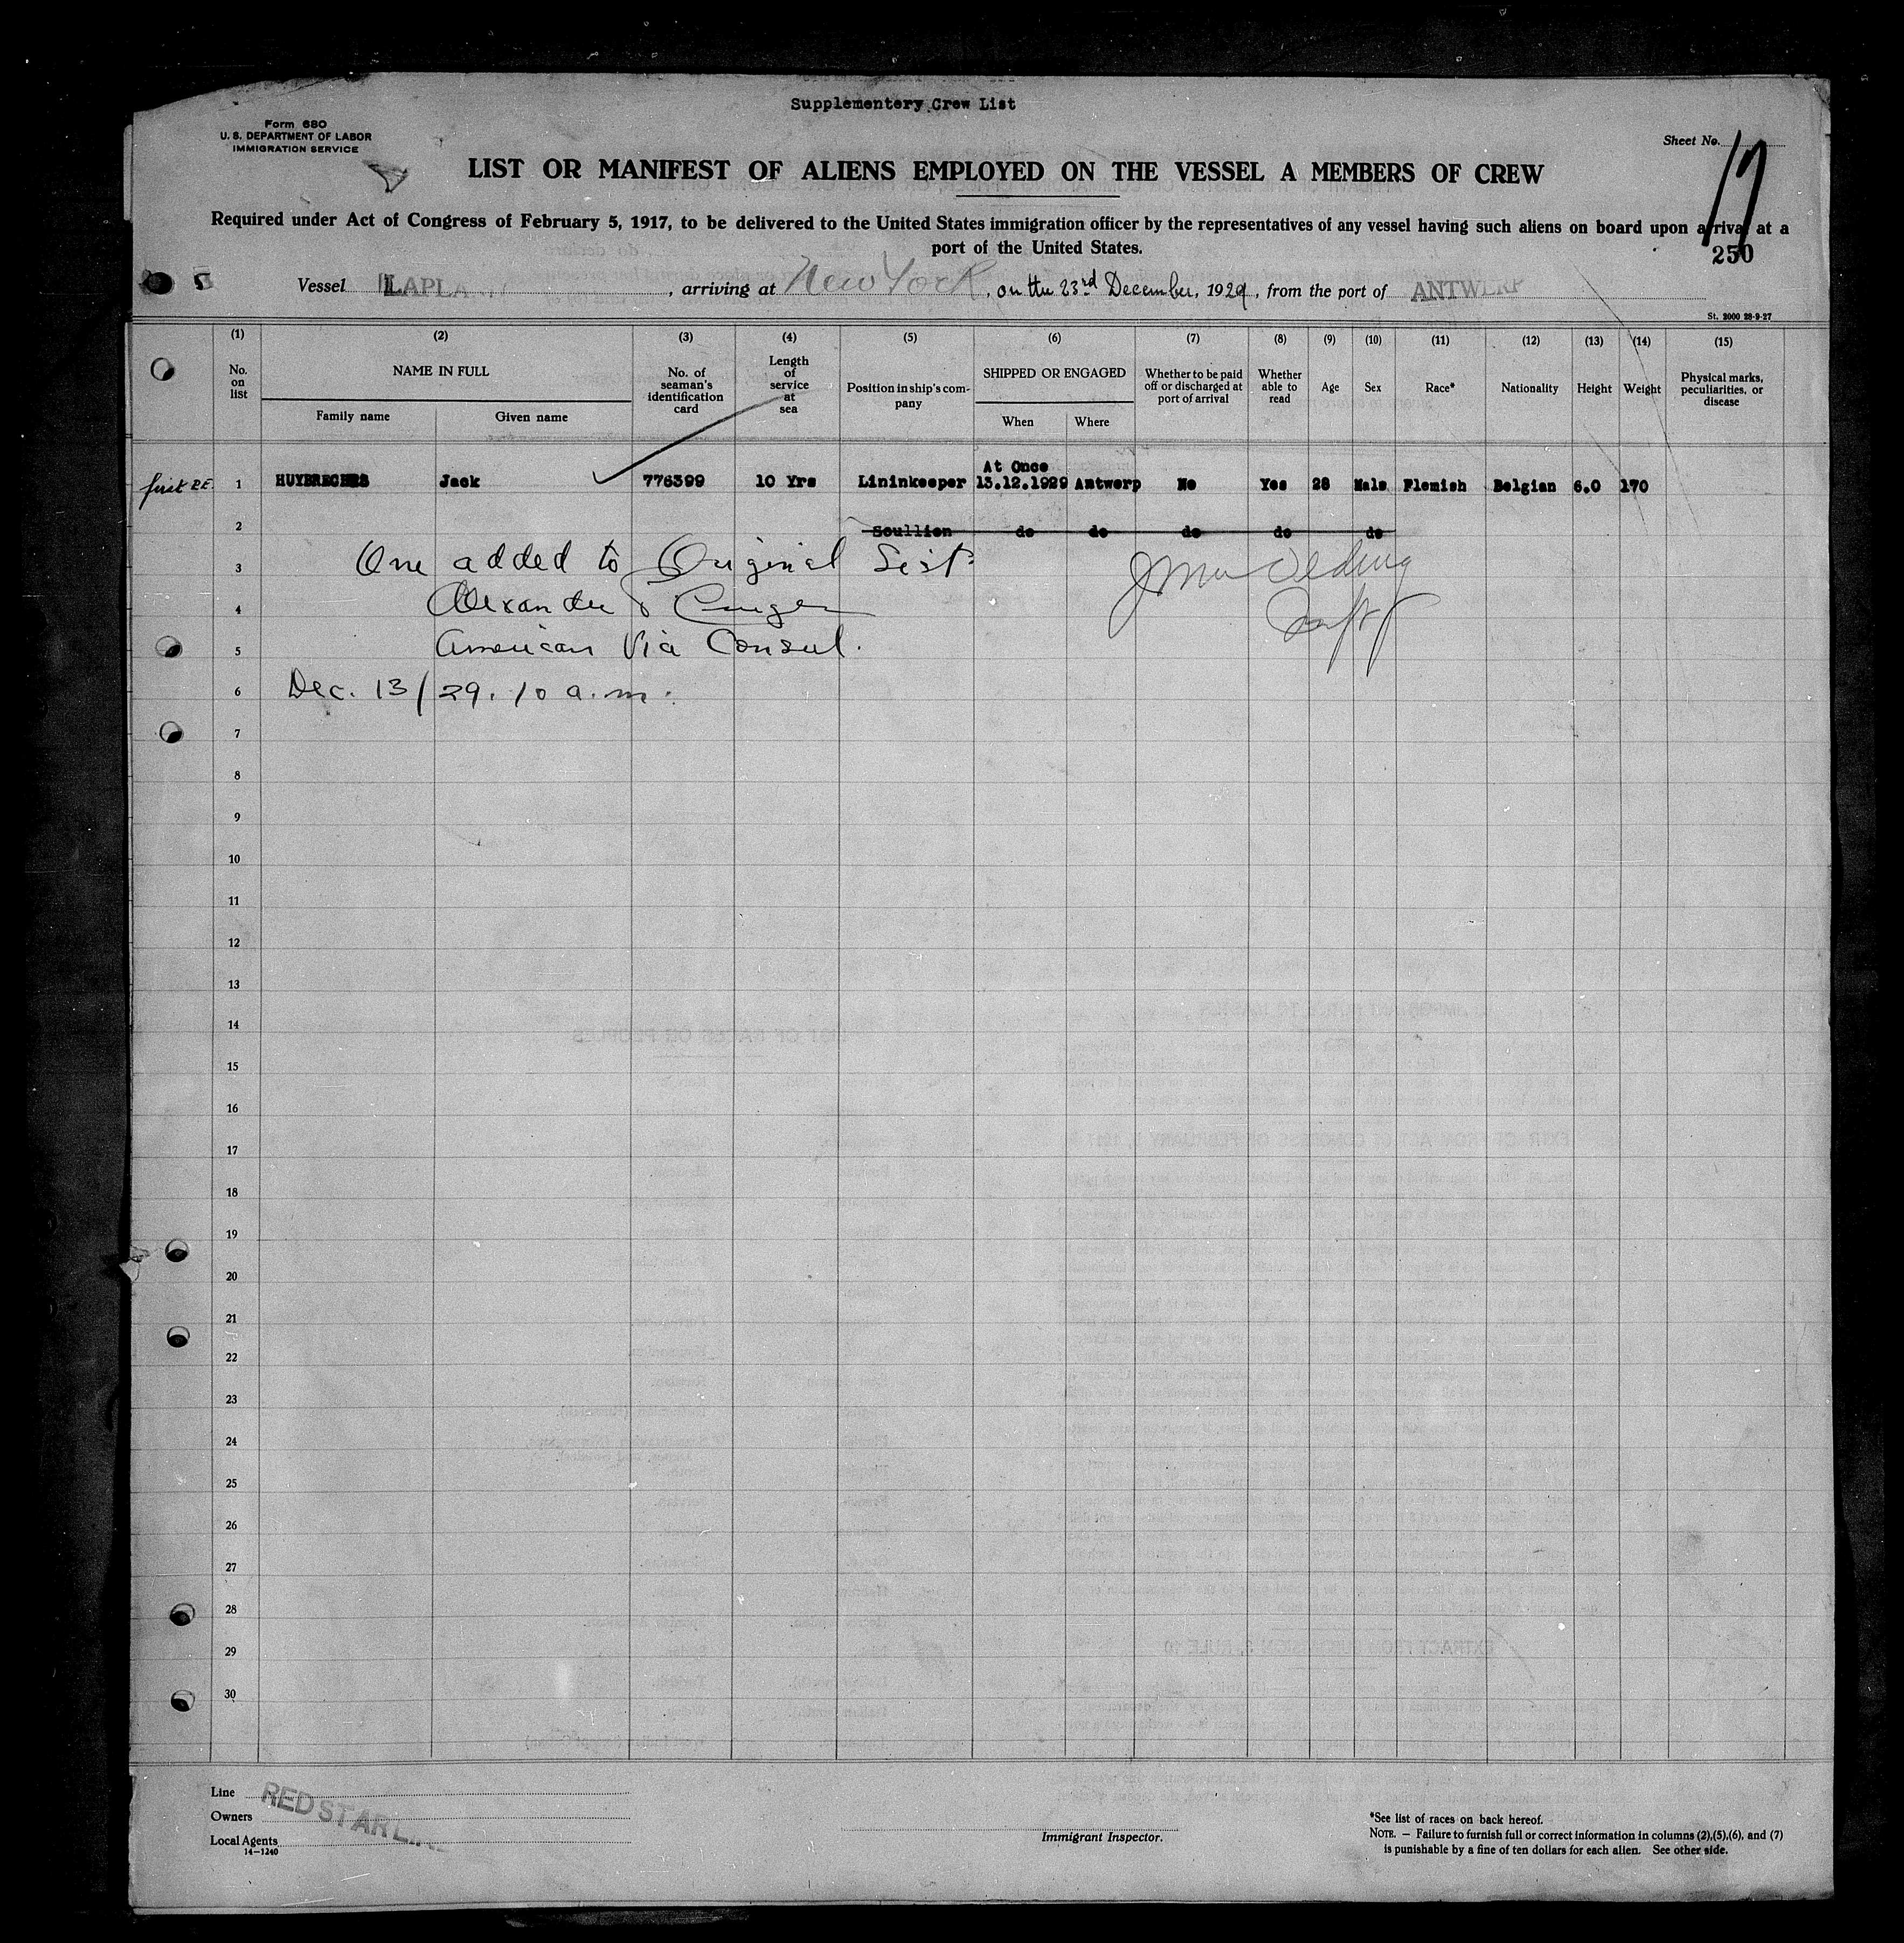 Supplementery Crew List
Form 680
U. S. DEPARTMENT OF LABOR
IMMIGRATION SERVICE
Sheet No. 17
LIST OR MANIFEST OF ALIENS EMPLOYED ON THE VESSEL A MEMBERS OF CREW
Required under Act of Congress of February 5, 1917, to be delivered to the United States immigration officer by the representatives of any vessel having such aliens on board upon arrival at a
port of the United States.
250
5
Vessel LAPLA , arriving at New York, on the 23rd December, 1929, from the port of ANTWERP
St. 2000 28-9-27
(1) (2) (3) (4) (5) (6) (7) (8) (9) (10) (11) (12) (13) (14) (15)
No. on list
NAME IN FULL
Family name
Given name
No. of seaman's identification card
Length of service at sea
Position in ship's com-
pany
SHIPPED OR ENGAGED
When
Where
Whether to be paid off or discharged at port of arrival
Whether able to read
Age
Sex
Race*
Nationality
Height
Weight
Physical marks, peculiarities, or disease
At Once
first 1 Jack 776399 10 Yrs Lininkeeper 13.12.1929 Antwerp No Yes 28 Male Flemish Belgian 6.0 170
2 Scullion do do do do do
3 One added to Original List
4 Alexander
5 American Via Consul.
6 Dec. 13/29. 10 a.m.
7
8
9
10
11
12
13
14
15
16
17
18
19
20
21
22
23
24
25
26
27
28
29
30
Line RED STAR LIN
Owners
Local Agents
14-1240
Immigrant Inspector.
*See list of races on back hereof.
NOTE. — Failure to furnish full or correct information in columns (2),(5),(6), and (7)
is punishable by a fine of ten dollars for each alien. See other side.